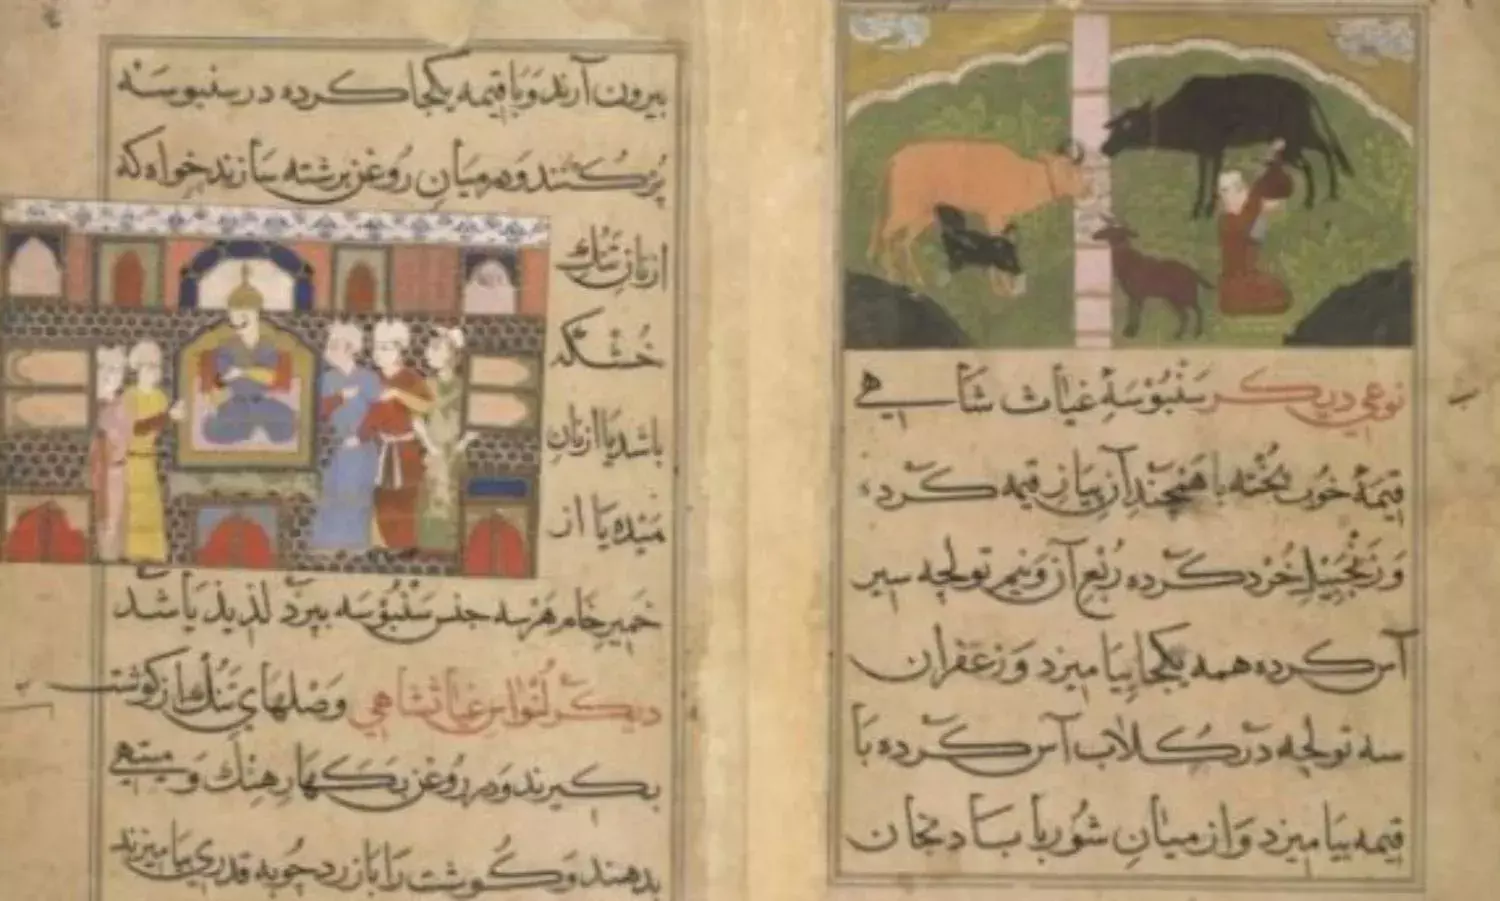 نوعی دیکر سنبوسهٔ غیاث شاهی
قیمهٔ خوب پخته با همچند آن پیاز قیمه کرده
و زنجبیل خرد کرده ربع آن و نیم تولچه سیر
آس کرده همه یکجا بیامیزد و زعفران
سه تولچه در کلاب آس کرده با
قیمه بیامیزد و از میان شوربا بادنجان
بیرون آرند و با قیمه یکجا کرده در سنبوسه
پر کنند و در میان روغن برشته سازند خواه که
از نان تنک
خشکه
باشد یا از نان
میده یا از
خمیر خام هر سه جنس سنبوسه بپزد لذیذ باشد
دیکر غیاثشاهی وصلهای تنک از کوشت
بکیرند و در روغن بکهار هنک و میتهی
بدهند و کوشت را با زردچوبه قدری بیامیزند